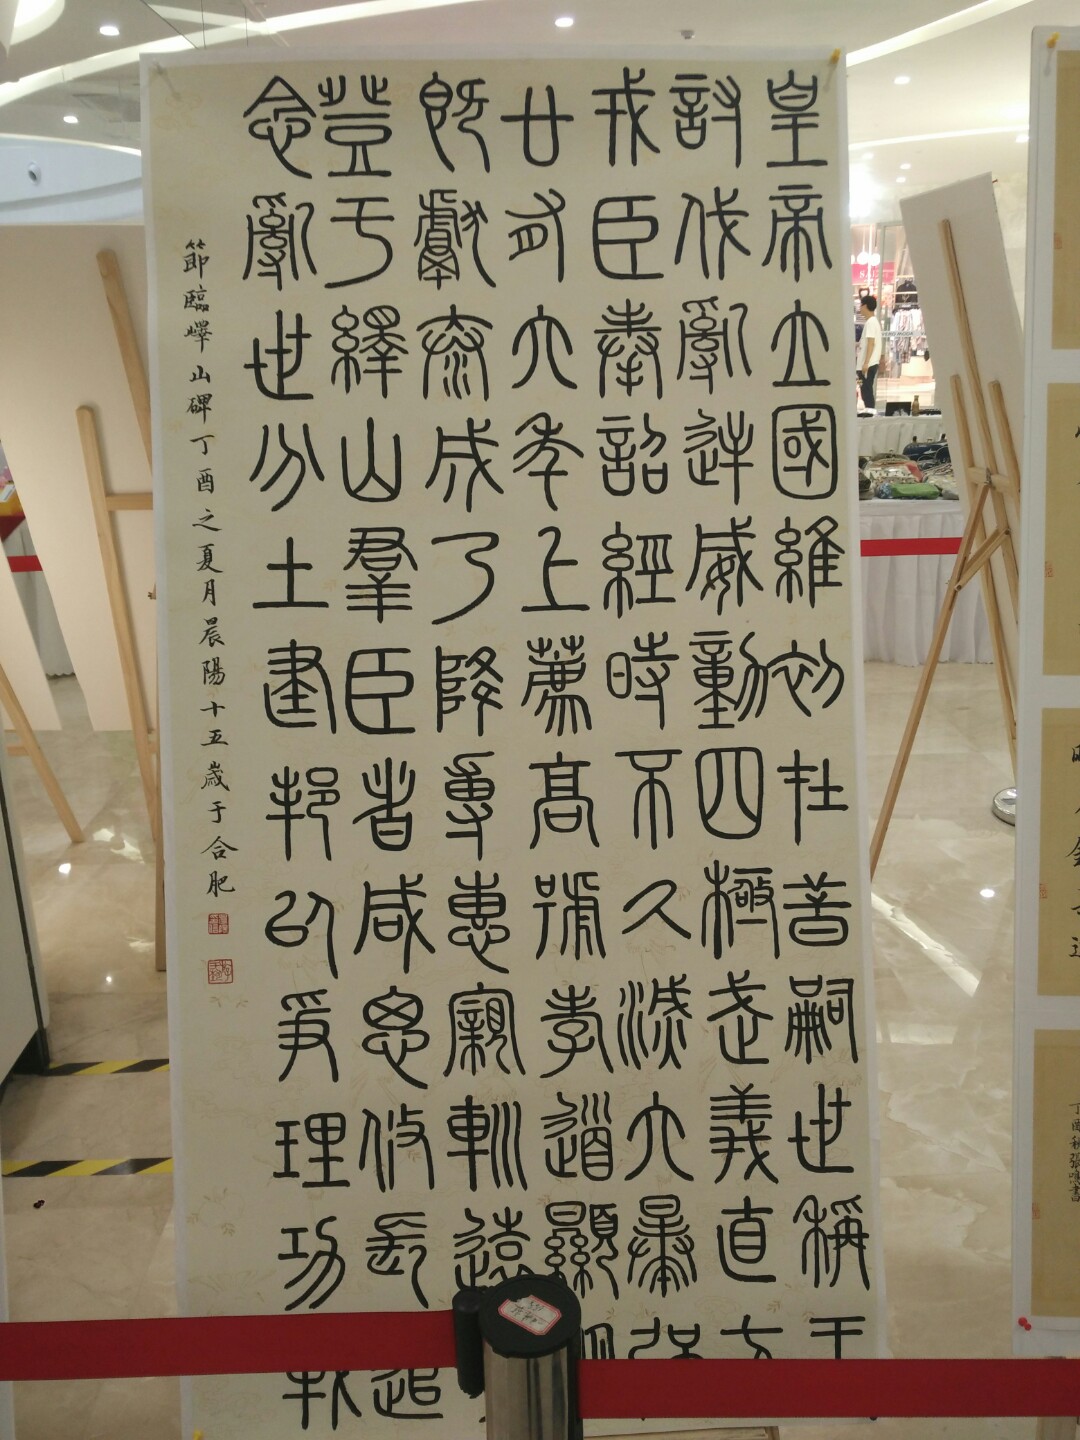 皇帝立國維初在昔嗣世稱王
討伐亂逆威動四極武義直方
戎臣奉詔經時不久滅六暴強
廿有六年上薦高號孝道顯明
既獻泰成乃降專惠親巡遠
登于繹山羣臣者咸思攸長追
念亂世分土建邦以爭理功戰
節臨嶧山碑丁酉之夏月晨陽十五歲于合肥